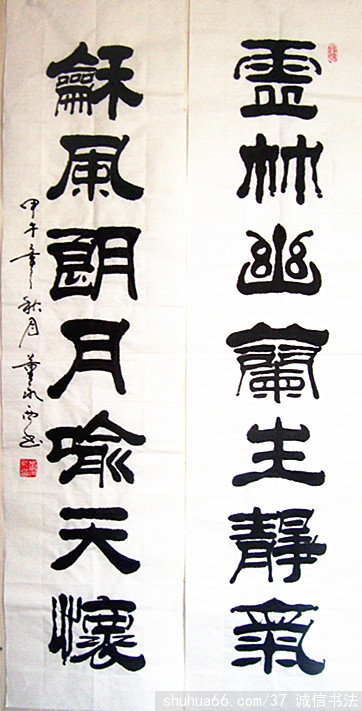 虛竹幽蘭生靜氣
龢風朗月喻天懷
甲午年秋月董
shuhua66.com/37 诚信书法